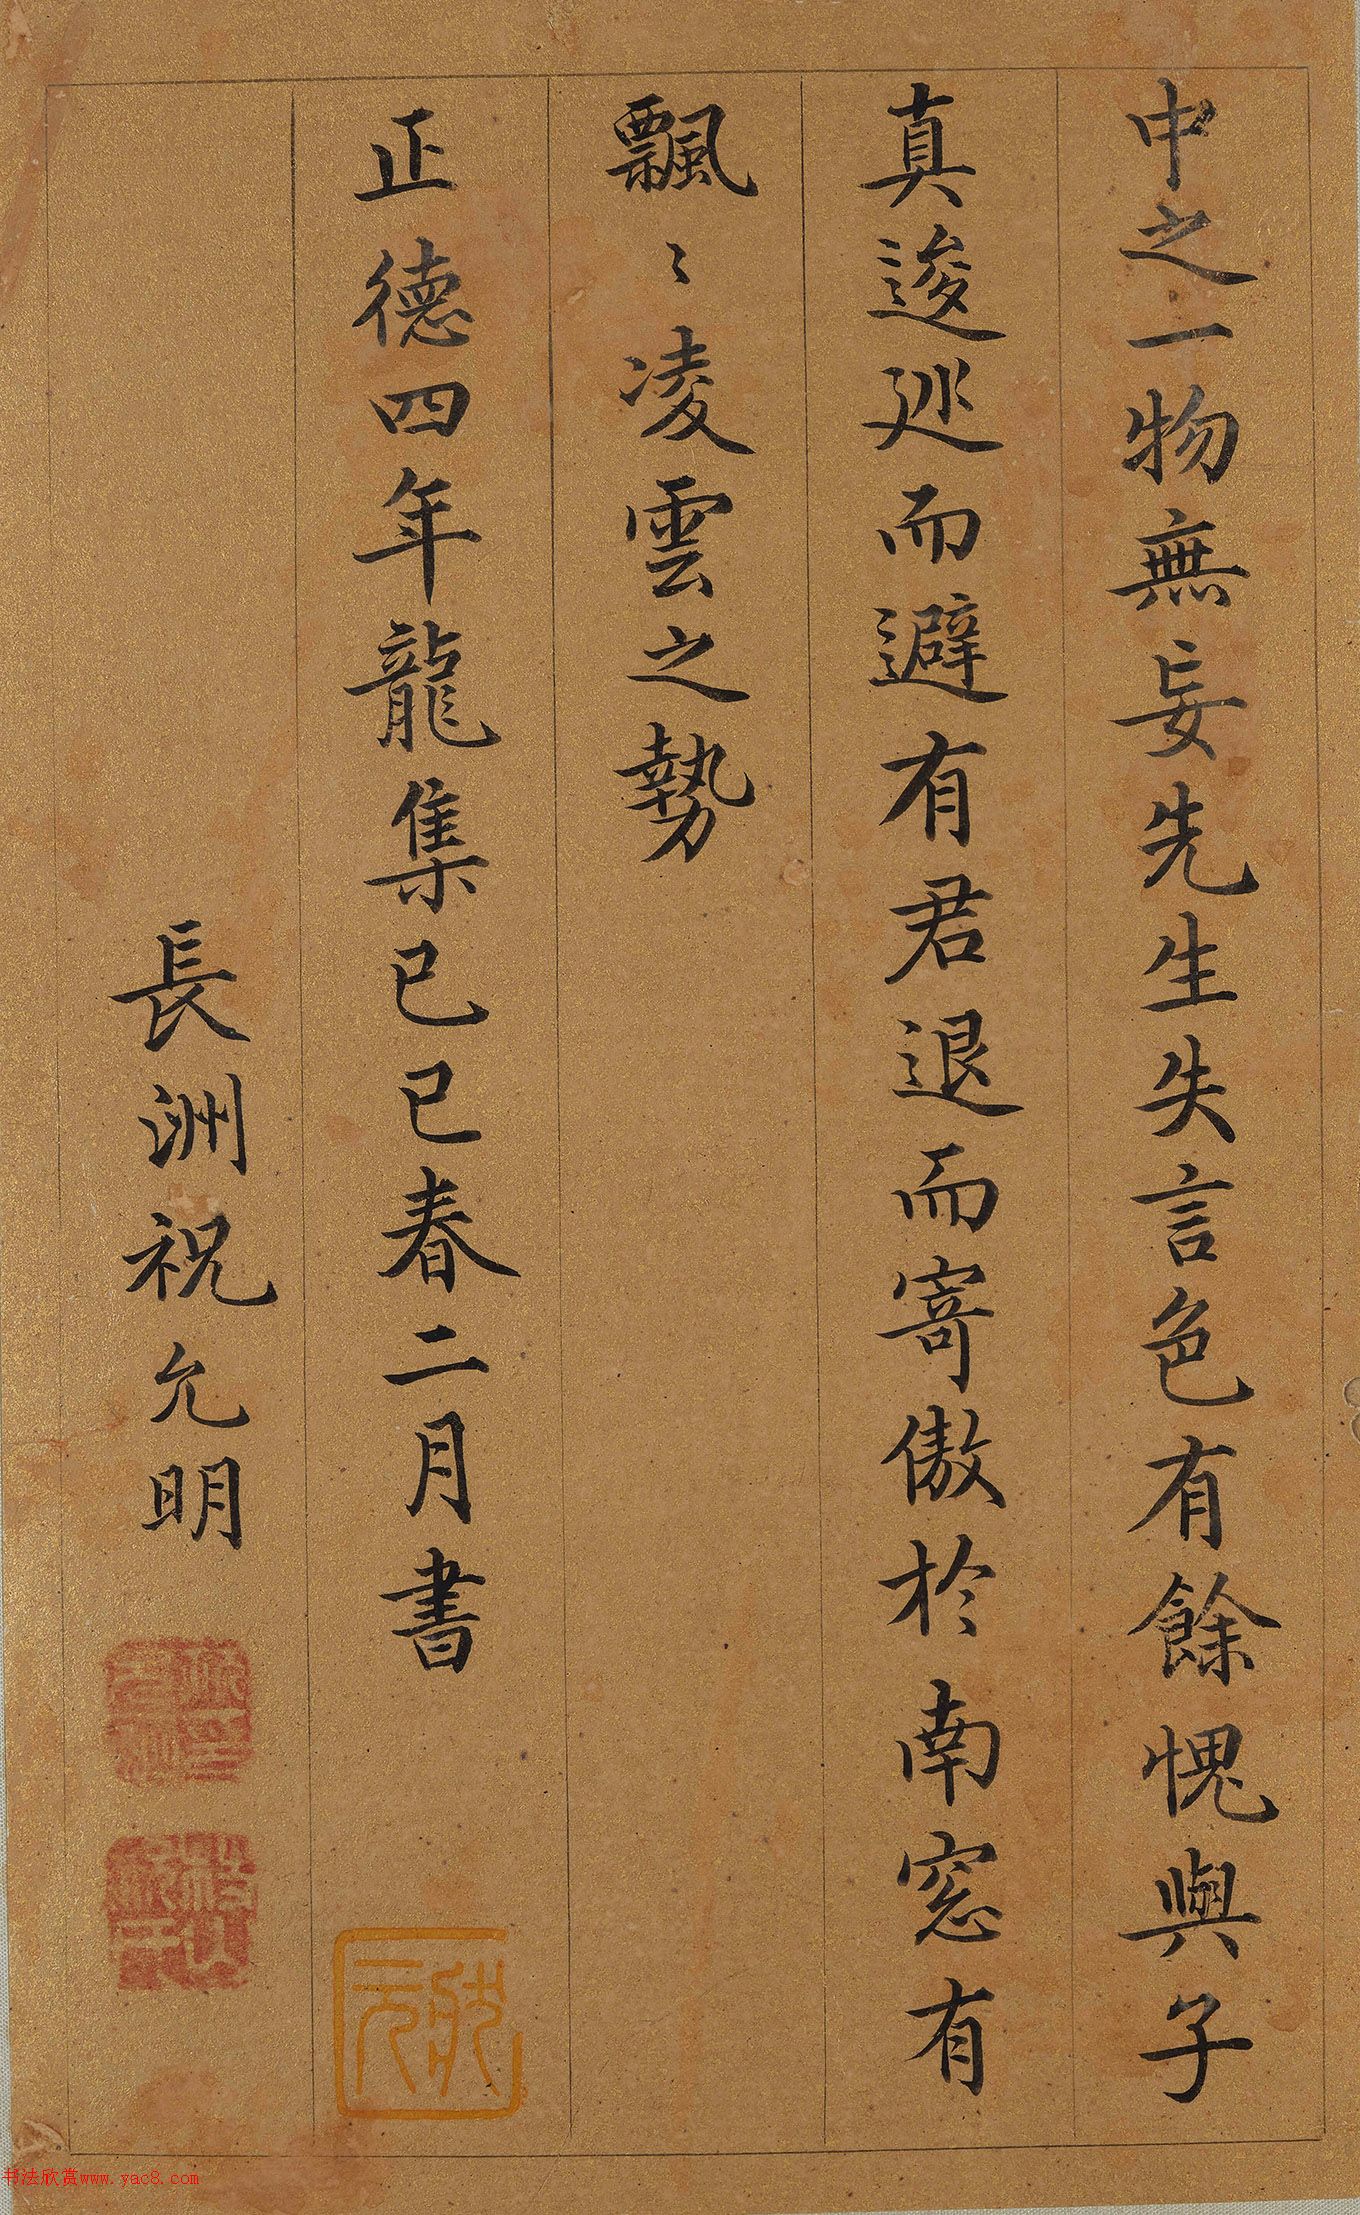 中之一物無妄先生失言色有餘愧與子
真逡巡而避有君退而寄傲於南窓有
飄〻凌雲之勢
正德四年龍集己巳春二月書
長洲祝允明
书法欣赏www.yac8.com